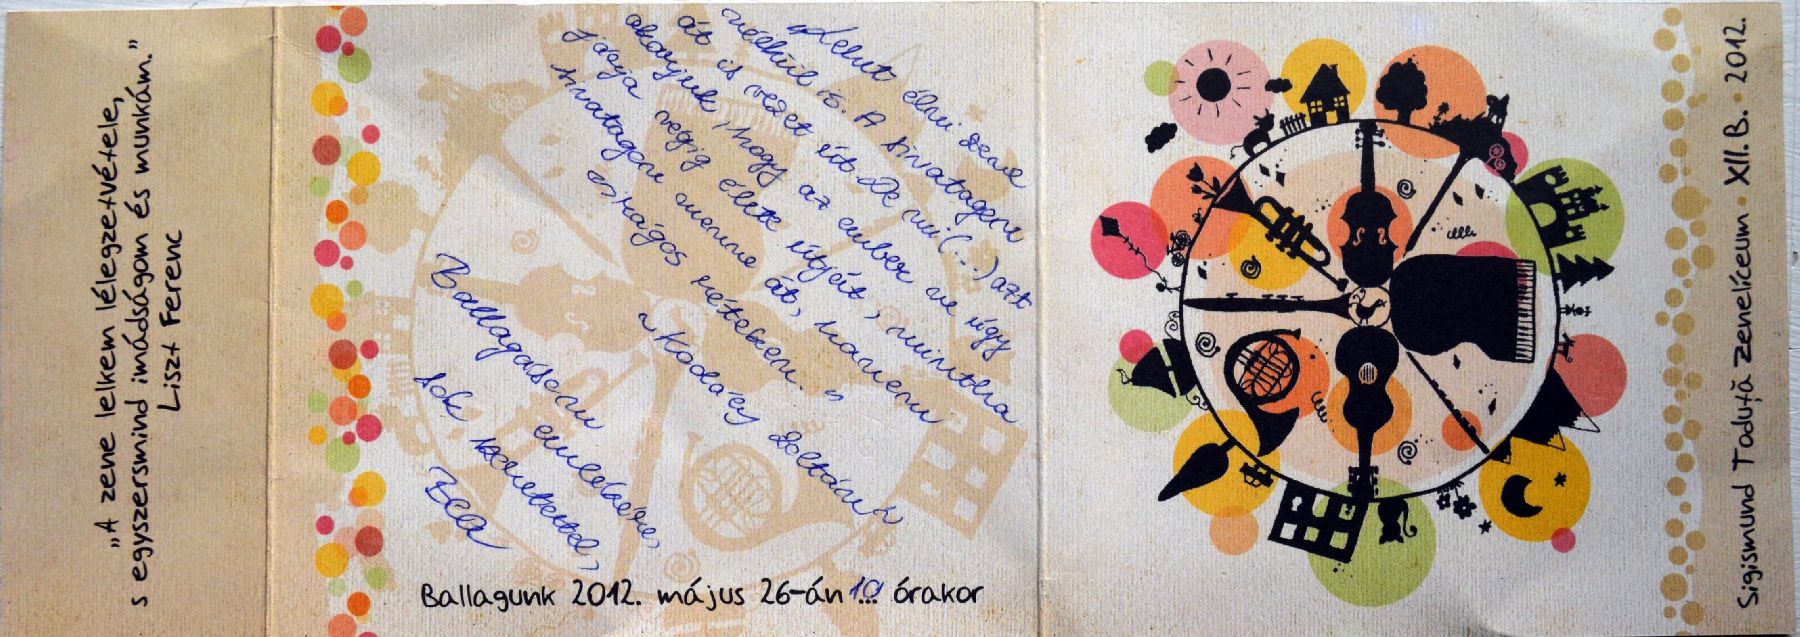 „A zene lelkem lélegzetvétele,
s egyszersmind imádságom és munkám.”
Liszt Ferenc
„Lehet élni zene
nélkül is. A sivatagon
át is vezet út. De mi (...) azt
akarjuk, hogy az ember ne úgy
járja végig élete útját, mintha
sivatagon menne át, hanem
virágos réteken."
~ Kodály Zoltán ~
Ballagásom
emlékére,
sok szeretettel,
Bea
Ballagunk 2012. május 26-án 10 órakor
Sigismund Toduță Zenelíceum • XII. B. • 2012.